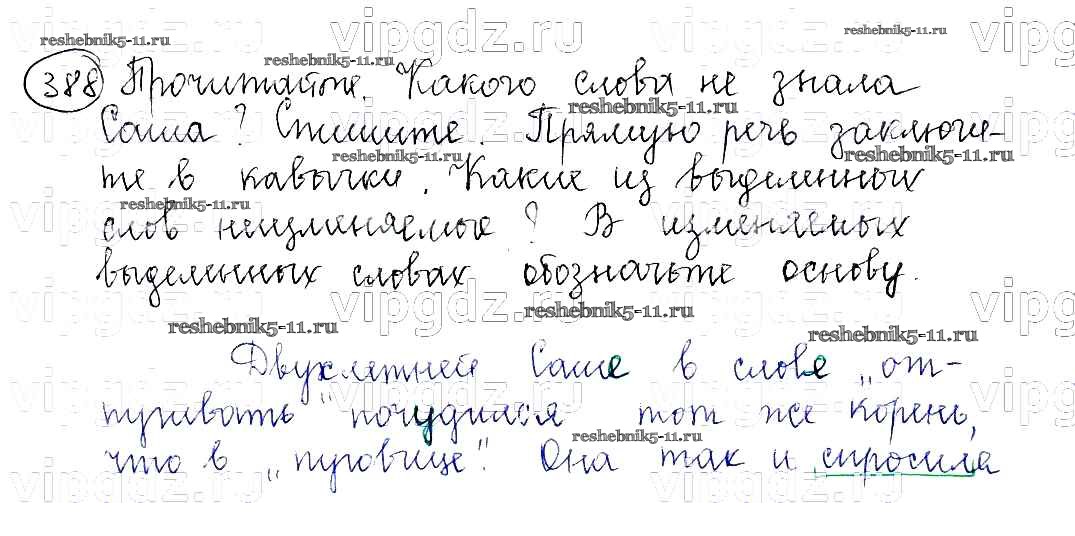 388 Прочитайте. Какого слова не знала
Саша? Спишите. Прямую речь заключи-
те в кавычки. Какие из выделенных
слов неизменяемые? В изменяемых
выделенных словах обозначьте основу.
Двухлетней Саше в слове „от-
пугивать" почудился тот же корень,
что в „пуговице". Она так и спросила